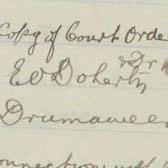 Copy of Court Orde
& Dr
E O Doherty
Drumaweer